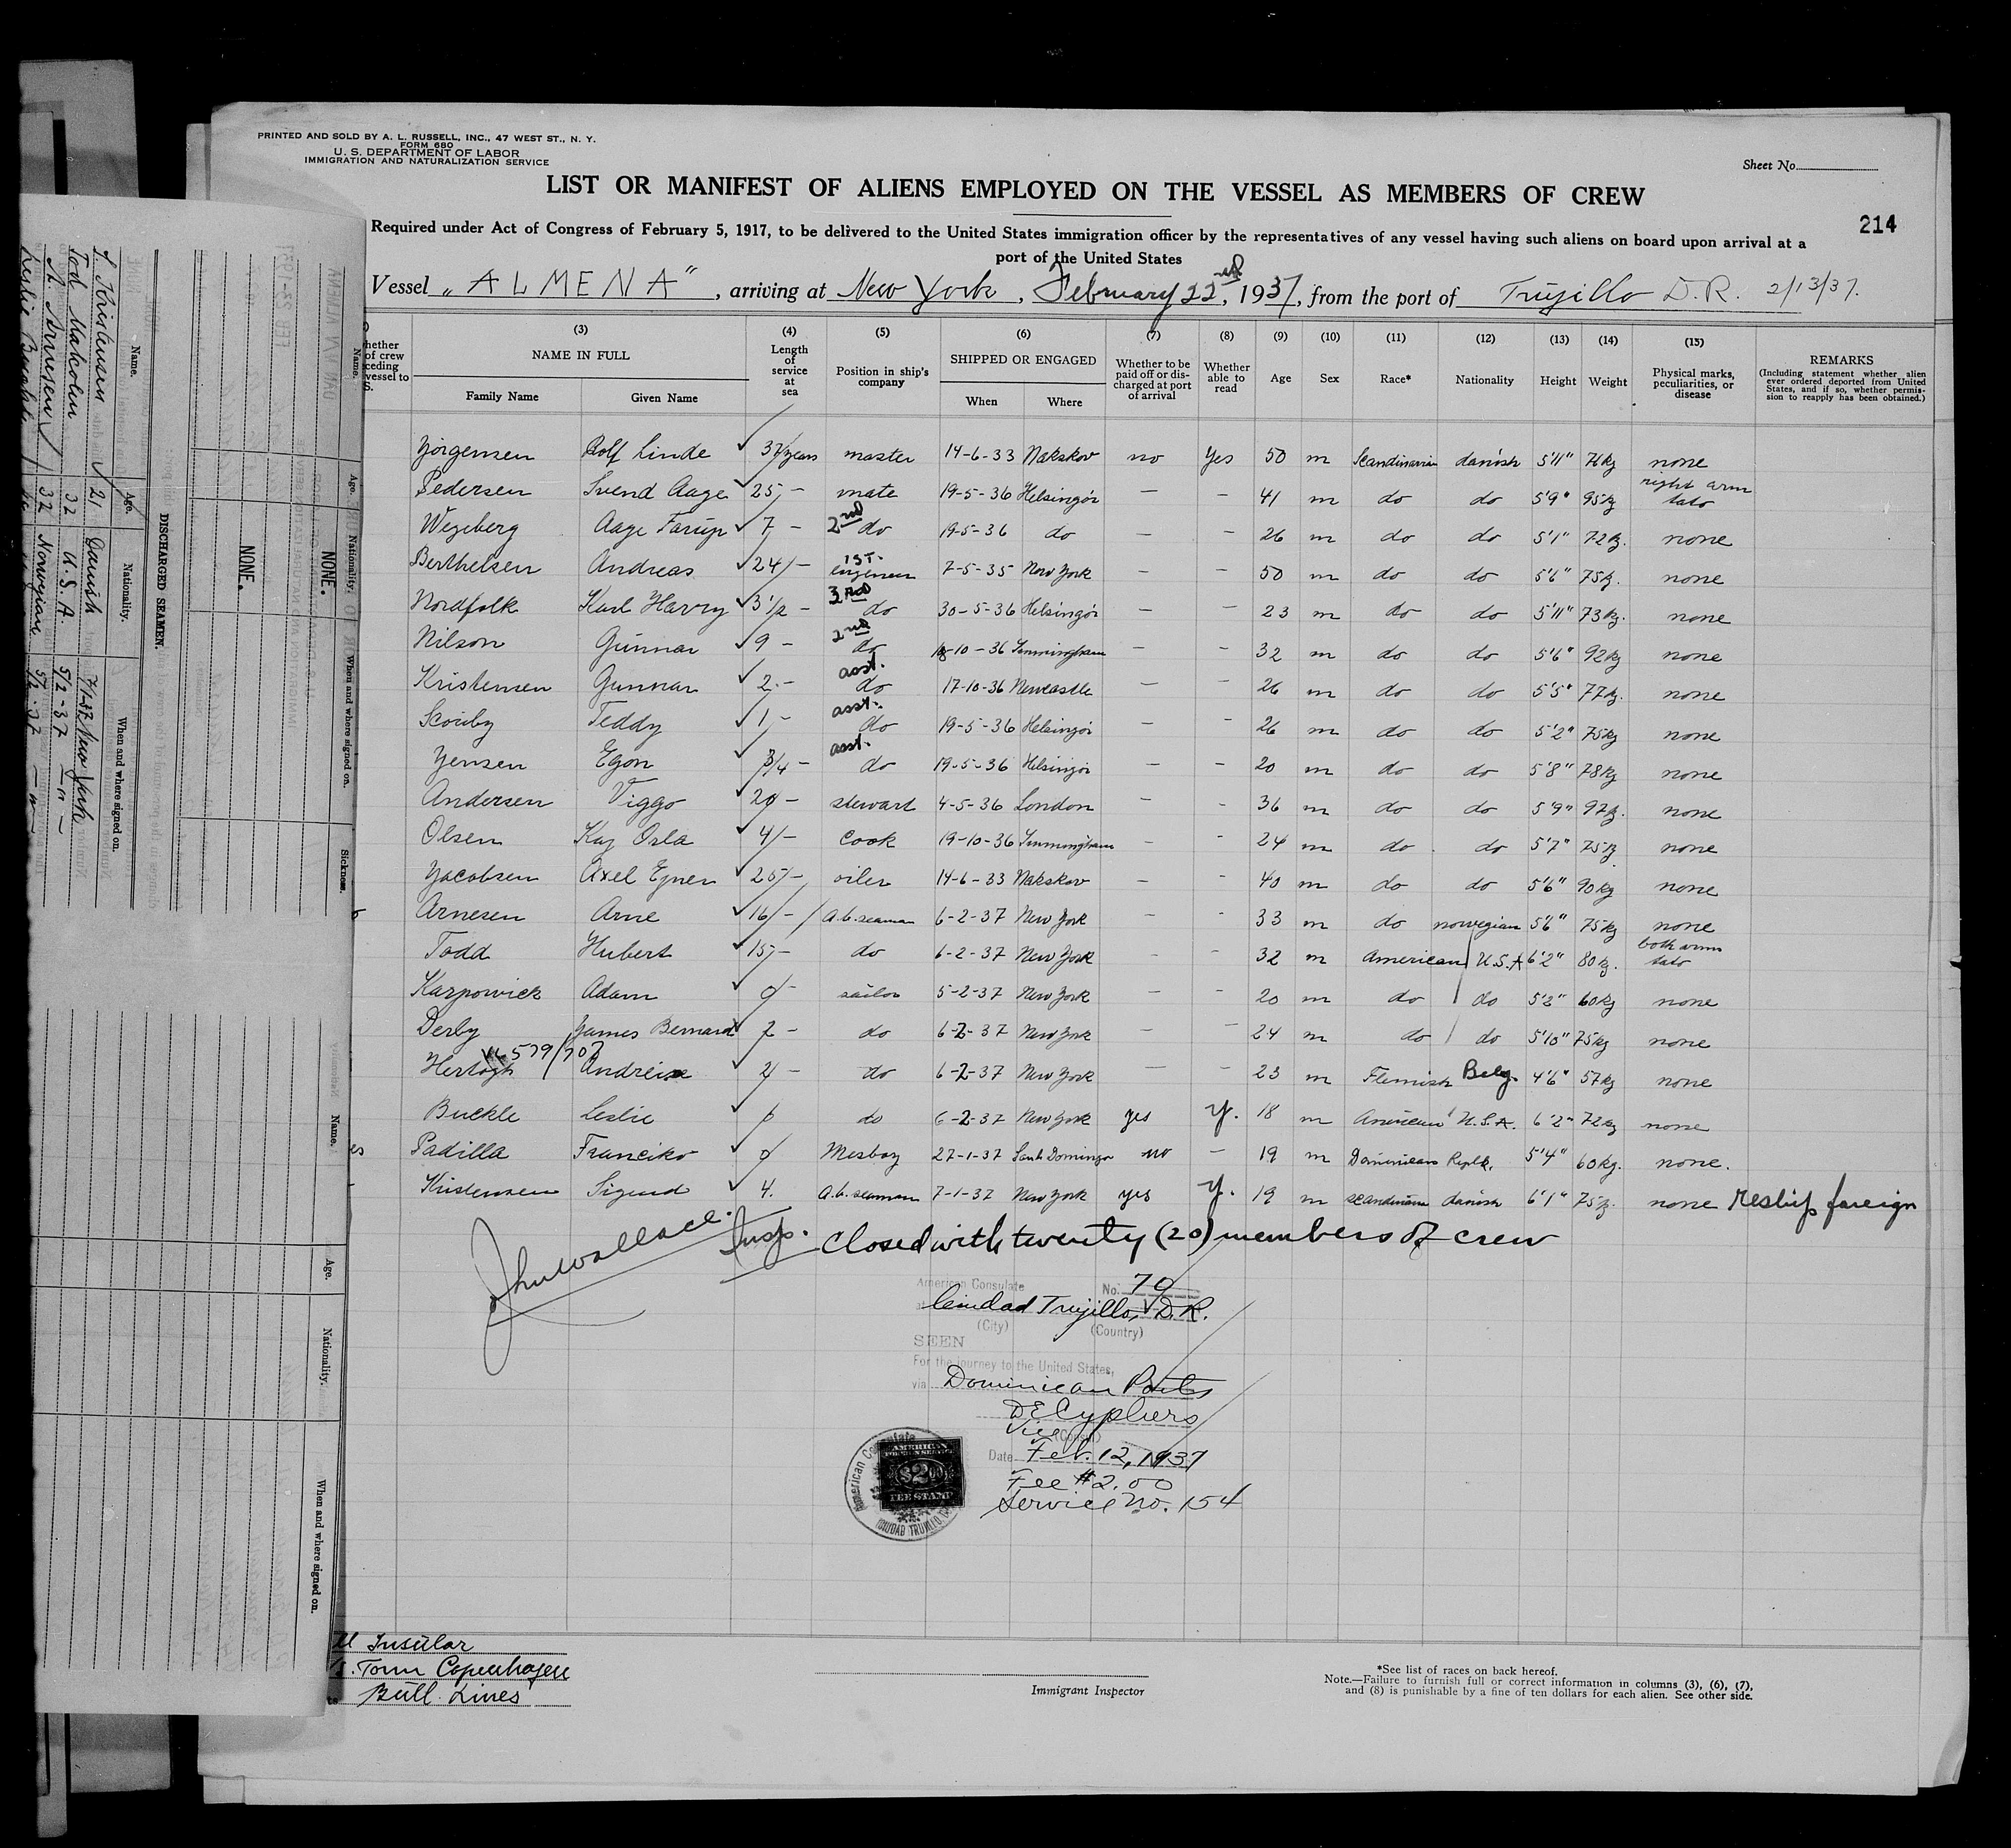 PRINTED AND SOLD BY A. L. RUSSELL, INC., 47 WEST ST., N. Y.
FORM 680
U. S. DEPARTMENT OF LABOR
IMMIGRATION AND NATURALIZATION SERVICE
Sheet No.
LIST OR MANIFEST OF ALIENS EMPLOYED ON THE VESSEL AS MEMBERS OF CREW
214
Required under Act of Congress of February 5, 1917, to be delivered to the United States immigration officer by the representatives of any vessel having such aliens on board upon arrival at a
port of the United States
Vessel „ALMENA", arriving at New York, February 22nd, 1937, from the port of Trujillo D.R. 2/13/37.
(3) (4) (5) (6) (7) (8) (9) (10) (11) (12) (13) (14) (15)
NAME IN FULL Length of service at sea Position in ship's company SHIPPED OR ENGAGED Whether to be paid off or discharged at port of arrival Whether able to read Age Sex Race* Nationality Height Weight Physical marks, peculiarities, or disease REMARKS
(Including statement whether alien ever ordered deported from United States, and if so, whether permission to reapply has been obtained.)
Family Name Given Name When Where
Yörgensen Rolf Linde 37 years master 14-6-33 Nakskov no Yes 50 m Scandinavian danish 5'11" 76kg none
Pedersen Svend Aage 25 - mate 19-5-36 Helsingör — - 41 m do do 5'9" 95kg right arm tato
Wegeberg Aage Farup 7 - 2nd do 19-5-36 do — - 26 m do do 5'1" 72kg. none
Berthelsen Andreas 24 - 1st. engineer 7-5-35 New York — - 50 m do do 5'6" 75kg. none
Nordfalk Karl Harry 3 1/2 - 3rd do 30-5-36 Helsingör — - 23 m do do 5'11" 73kg. none
Nilson Gunnar 9 - 2nd do 18-10-36 — - 32 m do do 5'6" 92kg none
Kristensen Gunnar 2 - asst. do 17-10-36 Newcastle — - 26 m do do 5'5" 77kg. none
Scouby Teddy 1 - asst. do 19-5-36 Helsingör — - 26 m do do 5'2" 75kg none
Yensen Egon 3/4 - asst. do 19-5-36 Helsingör — - 20 m do do 5'8" 78kg none
Andersen Viggo 20 - stewart 4-5-36 London — - 36 m do do 5'9" 97kg. none
Olsen Kaj Orla 4 - cook 19-10-36 — - 24 m do do 5'7" 75kg none
Yacobsen Axel Ejner 25 - oiler 14-6-33 Nakskov — - 40 m do do 5'6" 90kg none
Arnesen Arne 16 - A.b. seaman 6-2-37 New York — - 33 m do norwegian 5'6" 75kg none
Todd Hubert 15 - do 6-2-37 New York — - 32 m American U.S.A 6'2" 80kg. both arms tato
Karpowick Adam 0 - sailor 5-2-37 New York — - 20 m do do 5'2" 60kg none
Derby James Bernard 2 - do 6-2-37 New York — - 24 m do do 5'10" 75kg none
579/707
Hertogh 2 - do 6-2-37 New York — - 23 m Flemish Belg. 4'6" 57kg none
Buckle Leslie 0 do 6-2-37 New York yes y. 18 m American U.S.A. 6'2" 72kg none
Padilla Franciko 0 Mesboy 27-1-37 Santo Domingo no - 19 m Dominican Replk. 5'4" 60kg. none.
Kristensen Sigurd 4. A.b. seaman 7-1-37 New York yes y. 19 m scandinavian danish 6'1" 75kg. none Reship foreign
Jhn Wallace. Insp. Closed with twenty (20) members of crew
American Consulate No. 70
Ciudad Trujillo, D.R.
(City) (Country)
SEEN
For the journey to the United States,
via Dominican Ports
D E Cyphers
Vice (Consul)
Date Feb. 12, 1937
Fee #2.00
Service No. 154
American Consulate
AMERICAN
FOREIGN SERVICE
$2.00
FEE STAMP
CIUDAD TRUJILLO
Insular
Torm Copenhagen
Bull Lines
Immigrant Inspector
*See list of races on back hereof.
Note.—Failure to furnish full or correct information in columns (3), (6), (7),
and (8) is punishable by a fine of ten dollars for each alien. See other side.
DISCHARGED SEAMEN.
Name. Age. Nationality. When and where signed on.
S. Kristensen 21 Danish 7/1-37 New York
Tod Malcolm 32 U.S.A. 5/2-37 - " -
A. Arnesen 32 Norwegian 5/2-37 - " -
Name. Age. Nationality. When and where signed on. Sickness.
NONE.
NONE.
Name. Age. Nationality. When and where signed on.